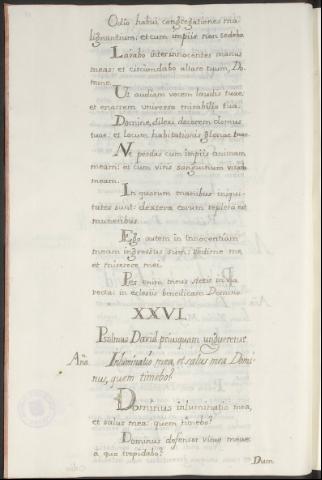 Odio habui congregationes ma
lignantium: et cum impiis non sedebo.
Lavabo inter innocentes manus
meas: et circundabo altare tuum, Do
mine.
Ut audiam vocem laudis tuae:
et enarrem universa mirabilia tua.
Domine, dilexi decorem domus
tuae: et locum habitationis gloriae tuae.
Ne perdas cum impiis animam
meam: et cum viris sanguinum vitam
meam.
In quorum manibus iniqui-
tates sunt: dextera eorum repleta est
muneribus.
Ego autem in innocentiam
meam ingressus sum: redime me
et miserere mei.
Pes enim meus stetit in via
recta: in eclesiis benedicam Domino.
XXVI.
Psalmus David priusquam ungueretur.
Año. Inluminatio mea, et salus mea Domi-
nus, quem timebo?
Dominus inluminatio mea,
et salus mea: quem timebo?
Dominus defensor vitae meae:
a quo trepidabo?
Dum